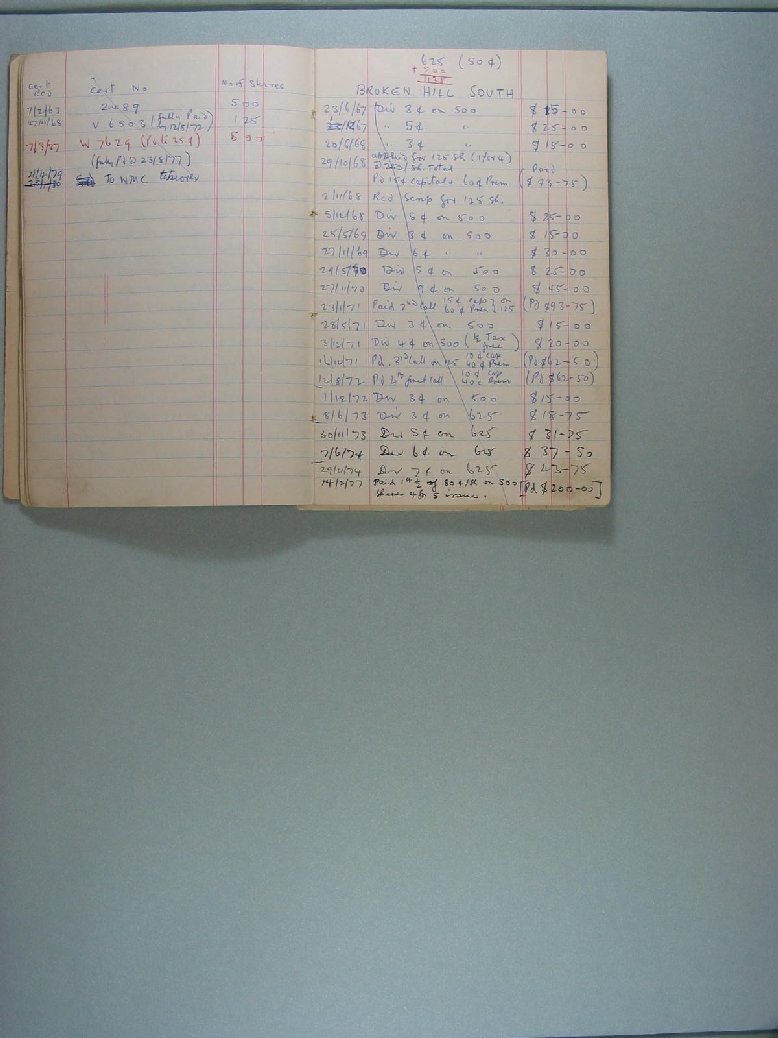 Cert Rec Cert No No of Shares
7/2/63 500
27/11/68 V 6503 (fully Paid 12/8/72) 125
7/3/77 W 7629 (Paid 25¢) 500
(fully Pd 23/8/77)
To WMC takeover
625 (50¢)
+ 500
1125
BROKEN HILL SOUTH
23/6/67 Div 3¢ on 500 $ 15-00
5¢ " $ 25-00
20/6/68 " 3¢ " $ 15-00
29/10/68 applying for 125 sh. (1 for 4)
/sh. Total (Paid
Pd 15¢ capital + 60¢ Prem ($ 93-75)
2/11/68 Rec Scrip for 125 sh.
5/12/68 Div 5¢ on 500 $ 25-00
25/5/69 Div 3¢ on 500 $ 15-00
27/11/69 Div 6¢ " " $ 30-00
29/5/70 Div 5¢ on 500 $ 25-00
27/11/70 Div 9¢ on 500 $ 45-00
23/1/71 Paid 2nd Call 15¢ cap 60¢ Prem } on 125 (Pd $93-75)
28/5/71 Div 3¢ on 500 $ 15-00
3/12/71 Div 4¢ on 500 (½ Tax free) $ 20-00
Pd. 3rd Call on 125 10¢ Cap 40¢ Prem (Pd $62-50)
12/8/72 Pd 4th final call 10¢ Cap 40¢ Prem (Pd $62-50)
1/12/72 Div 3¢ on 500 $ 15-00
8/6/73 Div 3¢ on 625 $ 18-75
30/11/73 Div 5¢ on 625 $ 31-25
7/6/74 Div 6¢ on 625 $ 37-50
29/11/74 Div 7¢ on 625 $ 43-75
14/2/77 Paid 1st ½ of 80¢/sh on 500 [Pd $200-00]
shares 4 for 5 issue.